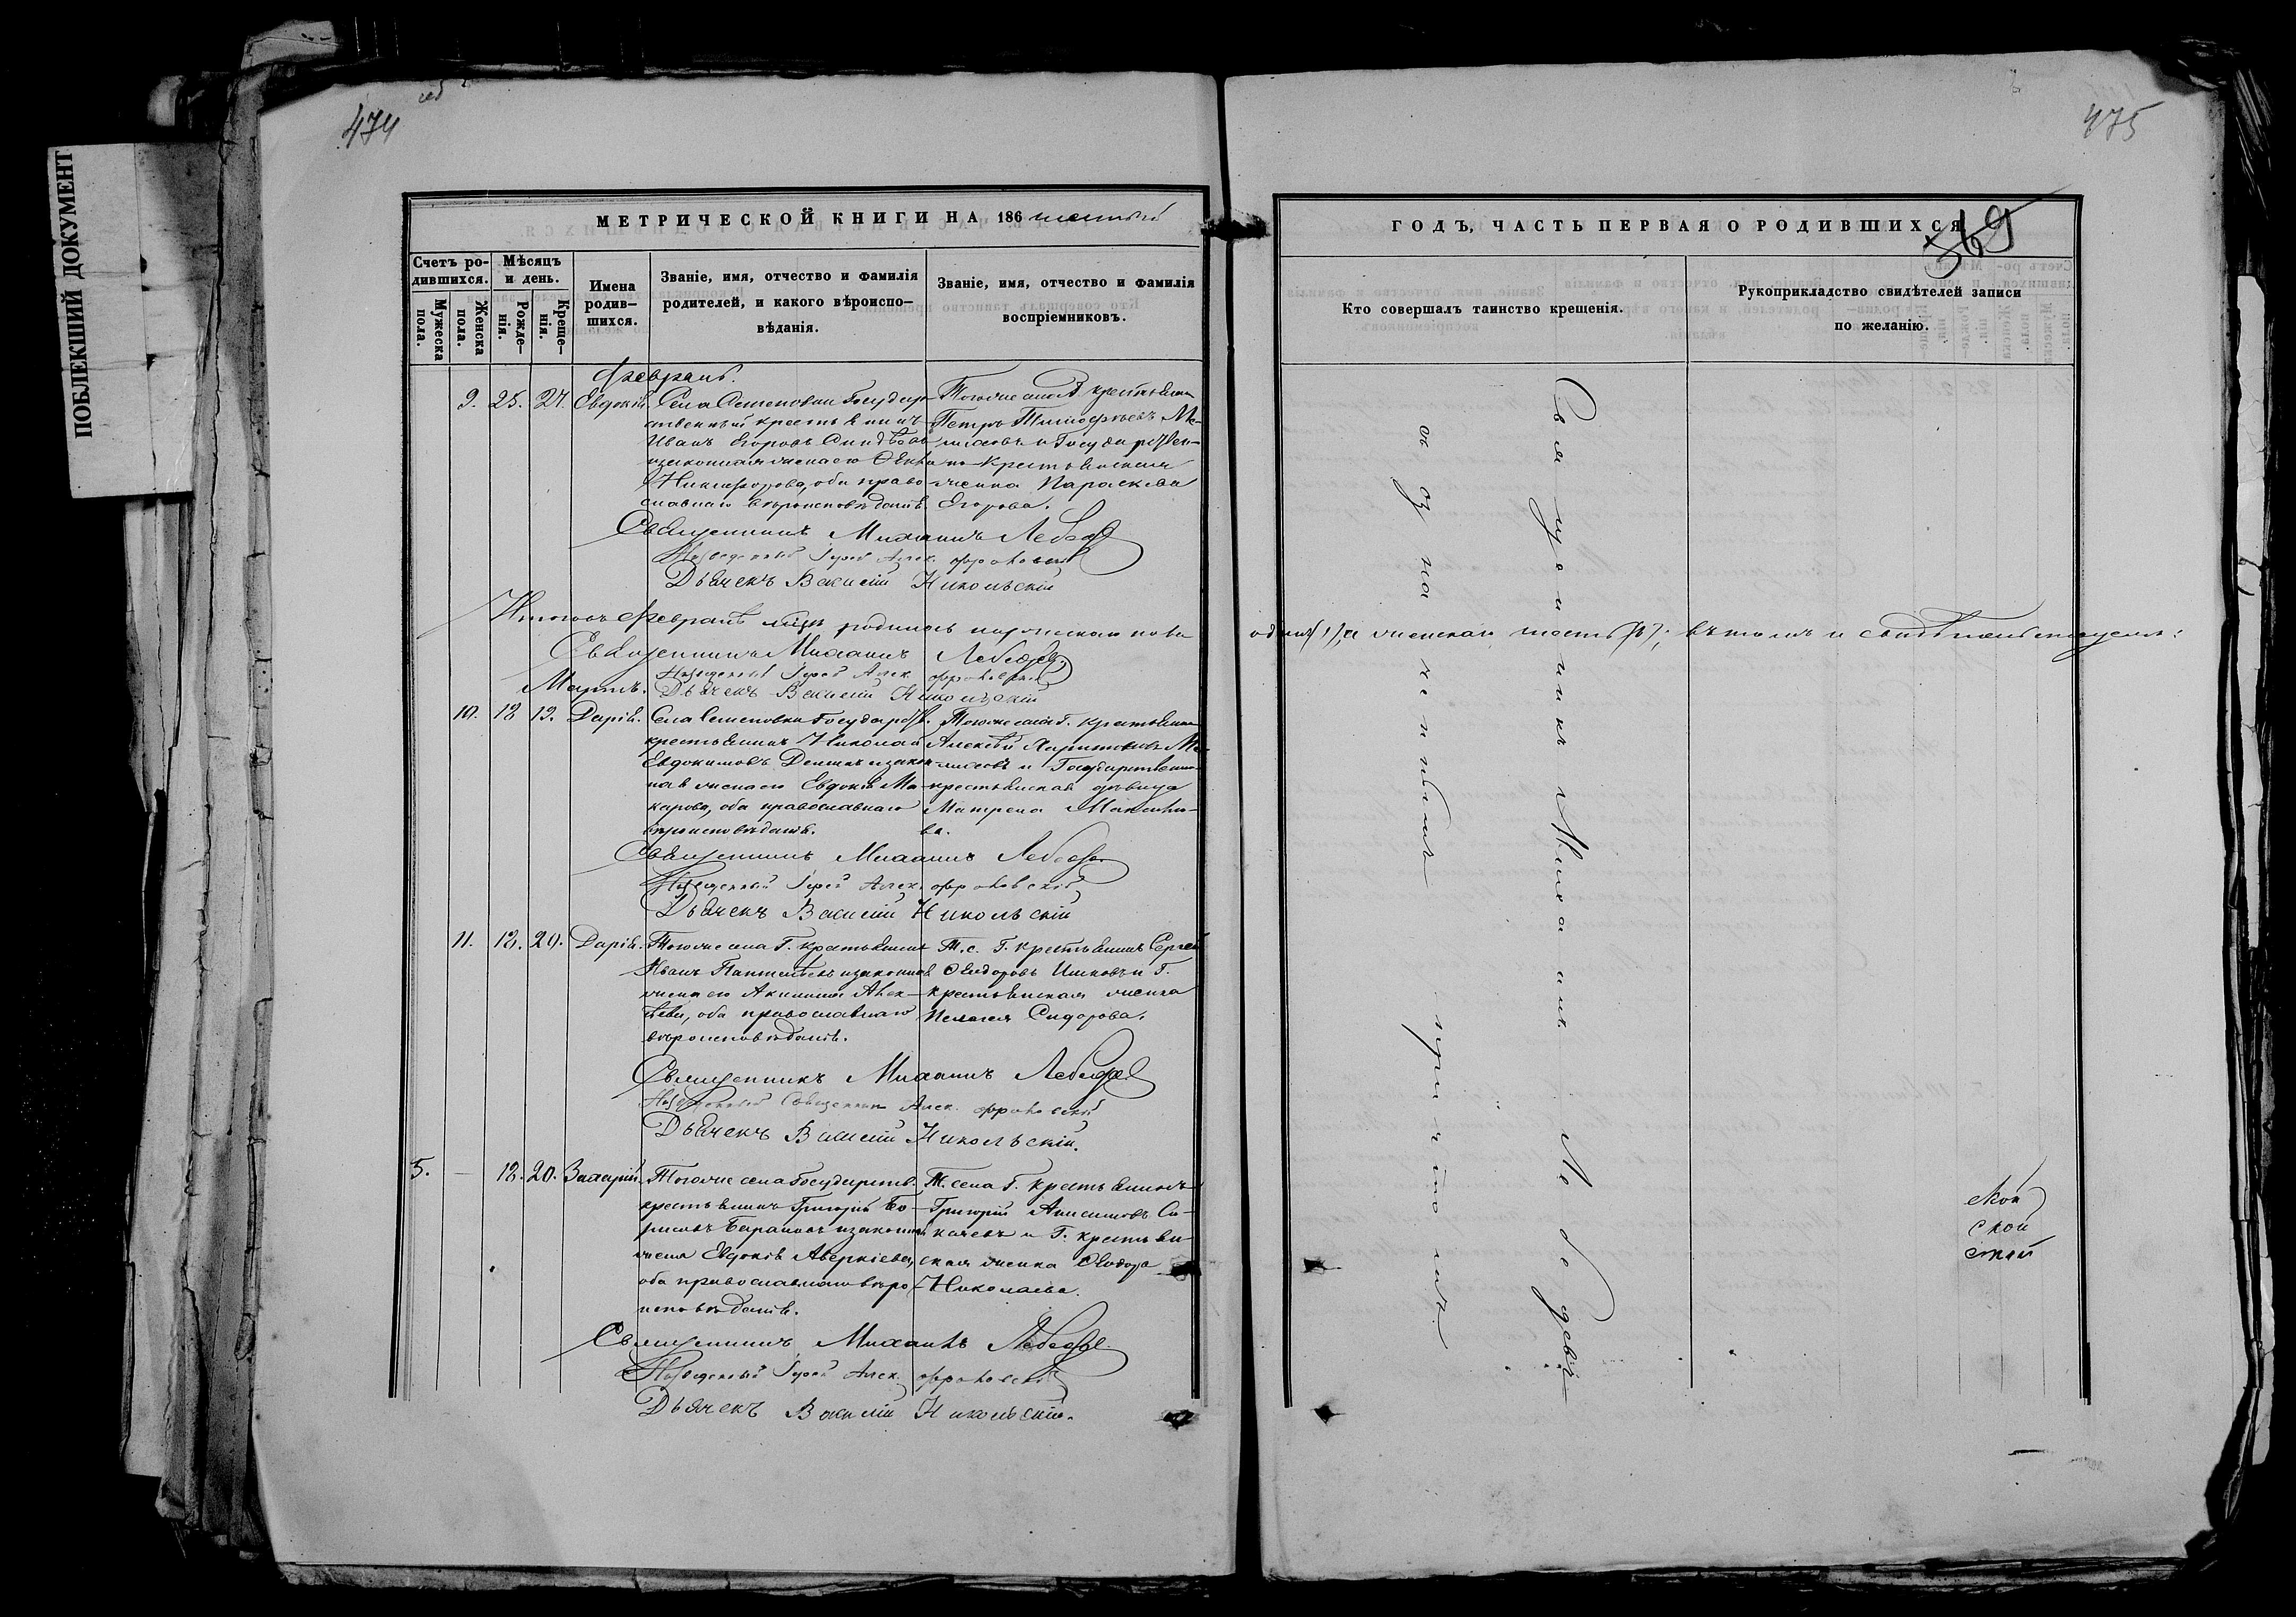 474
475
ПОБЛЕКШИЙ ДОКУМЕНТ
МЕТРИЧЕСКОЙ КНИГИ НА 186
Счетъ ро-
дившихся.
Мужеска
пола.
Женска
пола.
Мѣсяцъ
и день.
Рожде-
нія.
Креще-
нія.
Имена
родив-
шихся.
Званіе, имя, отчество и фамилія
родителей, и какого вѣроиспо-
вѣданія.
Званіе, имя, отчество и фамилія
воспріемниковъ.
Февраль.
9. 25. 27. Евдокія.
Села Семеновки Государ-
ственный крестьянинъ
Иванъ Егоровъ
законная жена его
Никифорова, оба право-
славнаго вѣроисповѣданія.
Тогоже села Г. крестьянинъ
Петръ Тимофѣевъ
и Государствен-
но-крестьянская
женка Параскева
Егорова.
Священникъ Михаилъ Лебедевъ
Дьячекъ Василій Никольскій
Итого въ Февралѣ родилось мужескаго пола
одинъ (1), а женскаго шесть (6); въ томъ и свидѣтельствуемъ:
Священникъ Михаилъ Лебедевъ
Дьячекъ Василій Никольскій
Мартъ.
10. 12 13. Дарія.
Села Семеновки Государств.
крестьянинъ Николай
Евдокимовъ и закон-
ная жена его Евдокія Ма-
карова, оба православнаго
вѣроисповѣданія.
Тогоже села Г. крестьянинъ
Алексѣй Харитоновъ
и Государственно-
крестьянская дѣвица
Матрена
ва.
Священникъ Михаилъ Лебедевъ
Дьячекъ Василій Никольскій
11. 12. 20. Дарія.
Тогоже села Г. крестьянинъ
Иванъ и законная
жена его Акилина Алек-
сѣева, оба православнаго
вѣроисповѣданія.
Т. с. Г. крестьянинъ Сергей
Ѳедоровъ и Г.
крестьянская женка
Пелагея Сидорова.
Священникъ Михаилъ Лебедевъ
Дьячекъ Василій Никольскій.
5. — 12. 20. Захарій.
Тогоже села Государств.
крестьянинъ Григорій Бо-
рисовъ Барановъ и законная
жена Евдокія Аверкіева,
оба православнаго вѣро-
исповѣданія.
Т. села Г. крестьянинъ
Григорій Анисимовъ
и Г. крестьян-
ская женка Ѳедора
Николаева.
Священникъ Михаилъ Лебедевъ
Дьячекъ Василій Никольскій.
ГОДЪ, ЧАСТЬ ПЕРВАЯ О РОДИВШИХСЯ
369
Кто совершалъ таинство крещенія.
Рукоприкладство свидѣтелей записи
по желанію.
Священникъ Михаилъ Лебедевъ
съ означеннымъ причтомъ